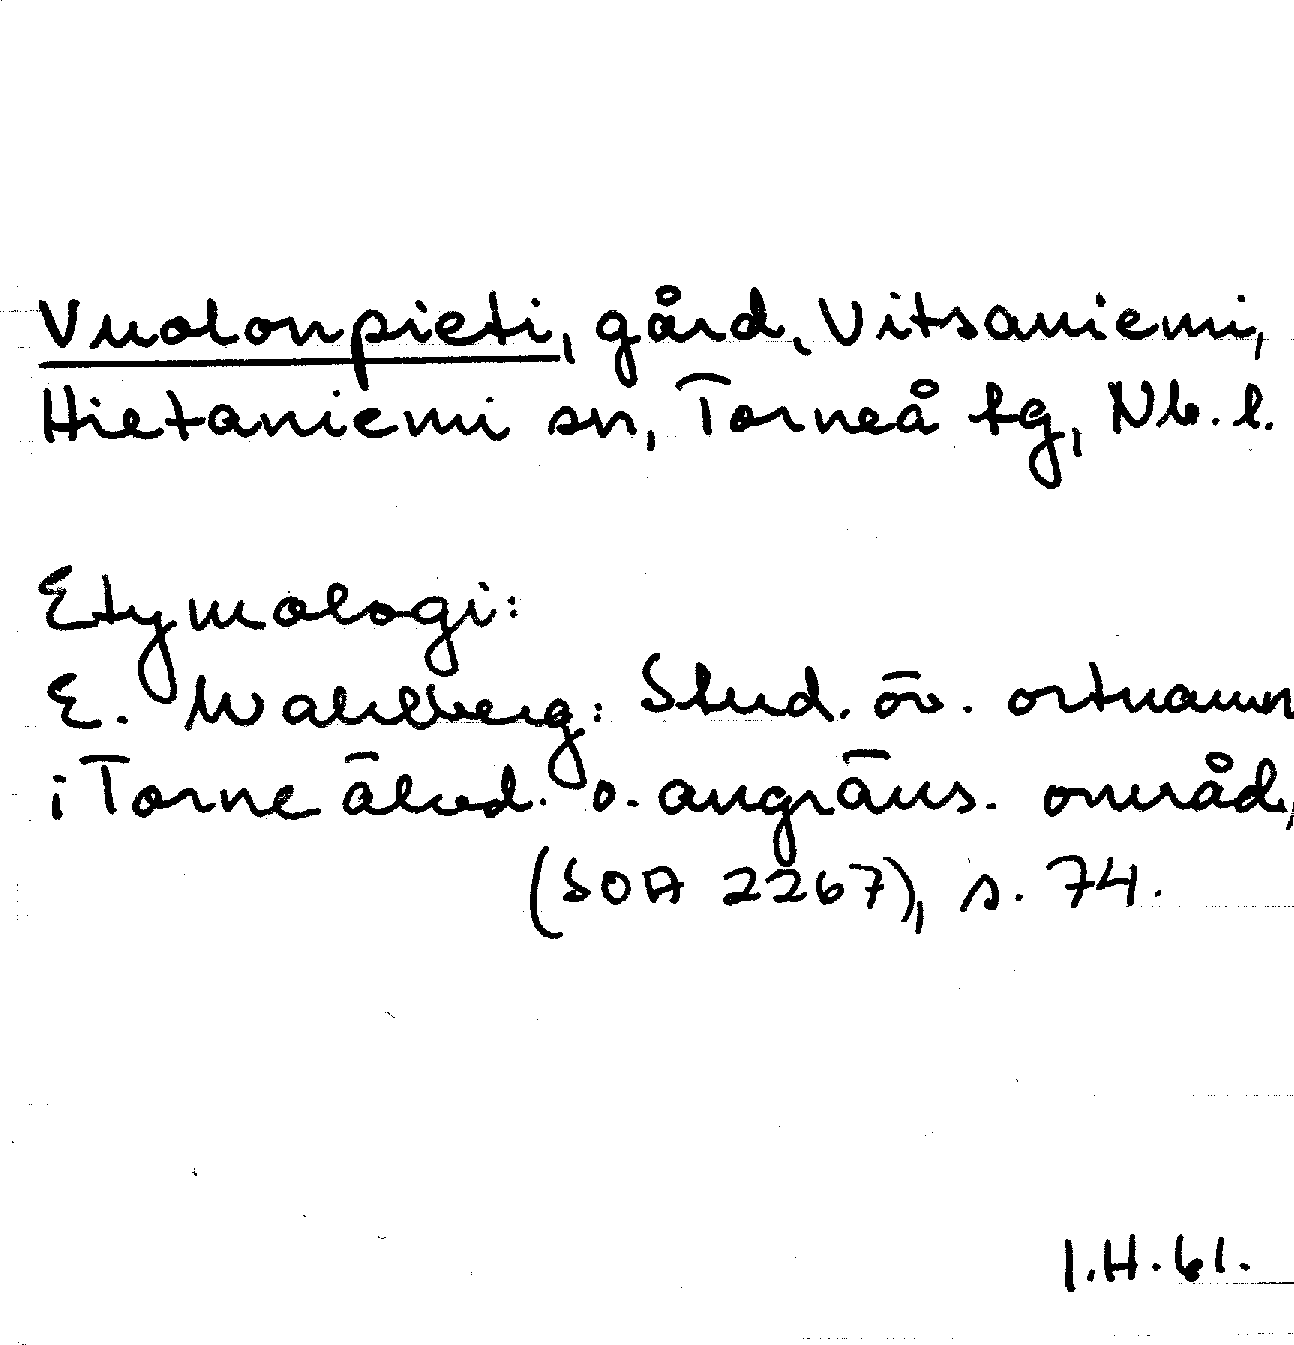 Vuolonpieti, gård, Vitsaniemi,
Hietaniemi sn, Torneå tg, Nb. l.
Etymologi:
E. Wahlberg: Stud. öv. ortnamn
i Torne älvd. o. angräns. område,
(SOA 2267), s. 74.
I.H. 61.